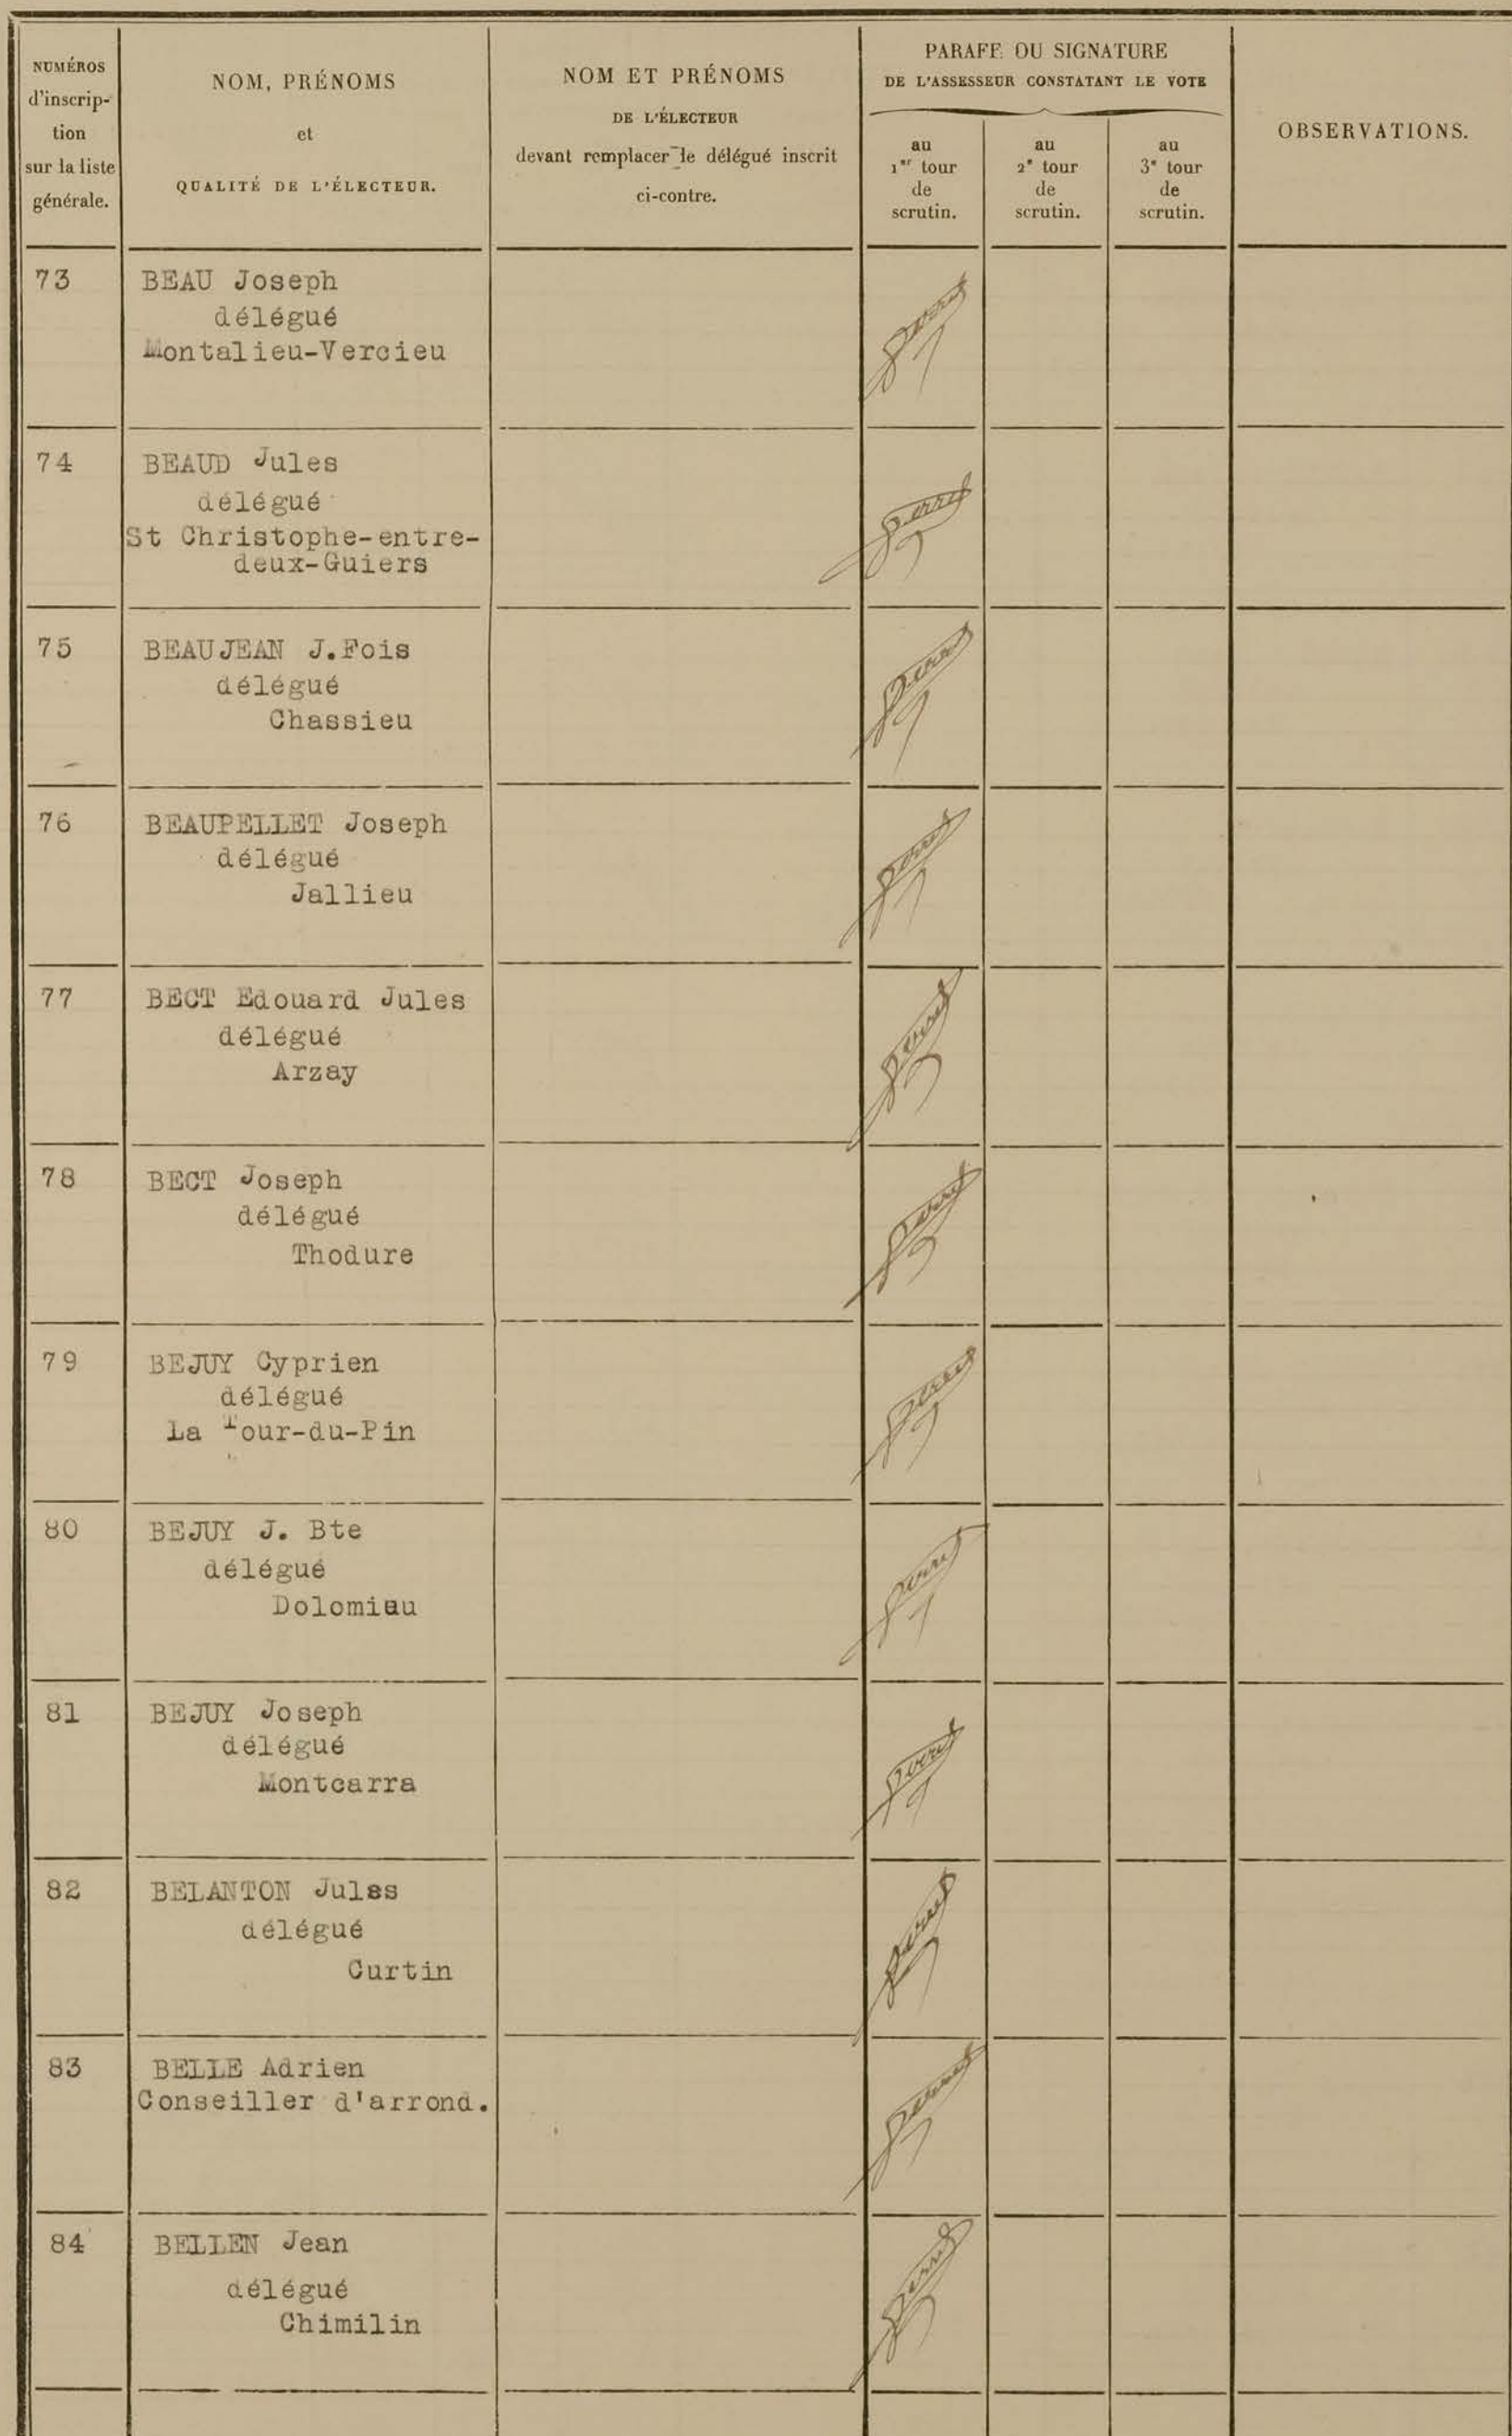 NUMÉROS
d'inscrip-
tion
sur la liste
générale.
NOM, PRÉNOMS
et
QUALITÉ DE L'ÉLECTEUR.
NOM ET PRÉNOMS
DE L'ÉLECTEUR
devant remplacer le délégué inscrit
ci-contre.
PARAFE OU SIGNATURE
DE L'ASSESSEUR CONSTATANT LE VOTE
au
1er tour
de
scrutin.
au
2e tour
de
scrutin.
au
3e tour
de
scrutin.
OBSERVATIONS.
73
BEAU Joseph
délégué
Montalieu-Vercieu
74
BEAUD Jules
délégué
St Christophe-entre-
deux-Guiers
75
BEAUJEAN J.Fois
délégué
Chassieu
76
BEAUPELLET Joseph
délégué
Jallieu
77
BECT Edouard Jules
délégué
Arzay
78
BECT Joseph
délégué
Thodure
79
BEJUY Cyprien
délégué
La Tour-du-Pin
80
BEJUY J. Bte
délégué
Dolomieu
81
BEJUY Joseph
délégué
Montcarra
82
BELANTON Jules
délégué
Curtin
83
BELLE Adrien
Conseiller d'arrond.
84
BELLEN Jean
délégué
Chimilin